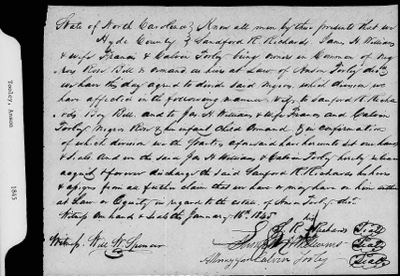 State of North Carolina } Know all men by these presents that we
Hyde County } Sandford R. Richards James H Williams
& wife Francis & Calvin Tooly being owners in Common of
Bill & as heirs at Law of Anson Tooly decd
we have this day agreed to divide said Negroes which division we
have affected in the following manner to Sanford R Richa
rds Boy Bill and to Jas H Williams & wife Frances and Calvin
Tooly Negro & an infant child & in confirmation
of which division we the parties aforesaid have hereunto set our hands
& seals And we the said Jas H Williams & Calvin Tooly hereby
forever discharge the said Sanford R Richards his heirs
& assigns from all further claim that we have or may have on him either
at Law or Equity in regard to the estate of Anson Tooly decd
Witness our hands & seals this January 1845
S. R. Richards (Seal)
Williams (Seal)
Witness Will W. Spencer
Calvin Tooley (Seal)
Tooley, Anson
1845